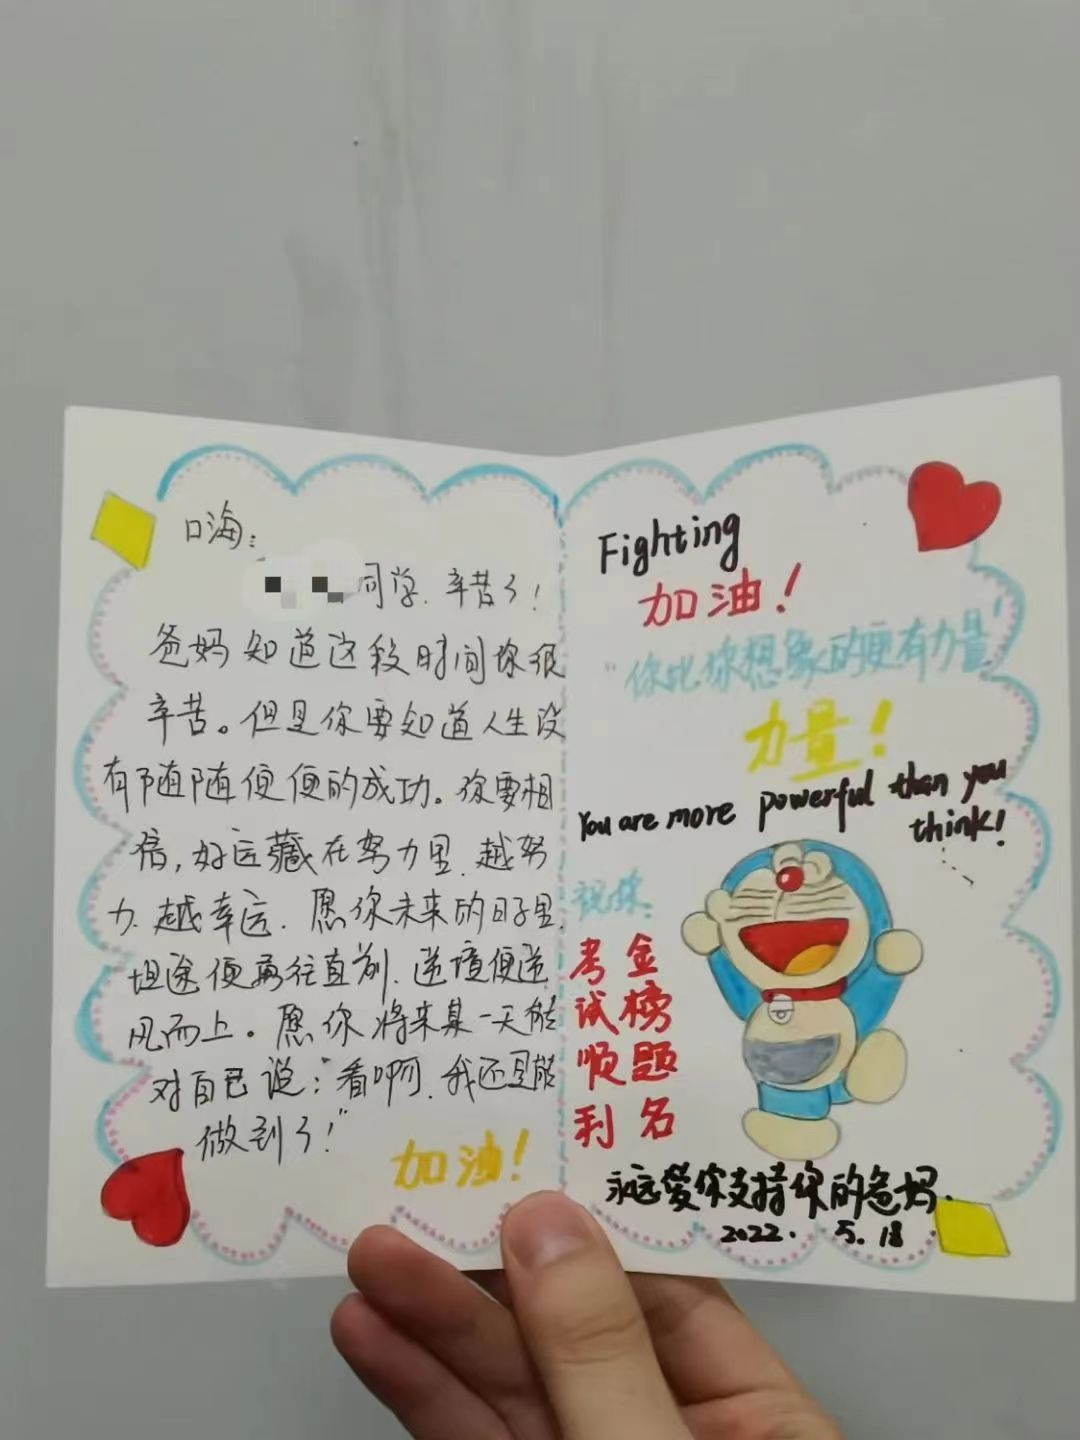 口海:
同学.辛苦了!
爸妈知道这段时间你很
辛苦。但是你要知道人生没
有随随便便的成功。你要相
信,好运藏在努力里.越努
力.越幸运.愿你未来的日子里.
坦途便勇往直前.逆境便逆
风而上。愿你将来某一天能
对自己说:"看啊.我还是能
做到了!"
加油!
Fighting
加油!
"你比你想象的更有力量"
力量!
You are more powerful than you
think!
祝你:
考试顺利
金榜题名
永远爱你支持你的爸妈.
2022. 5.18